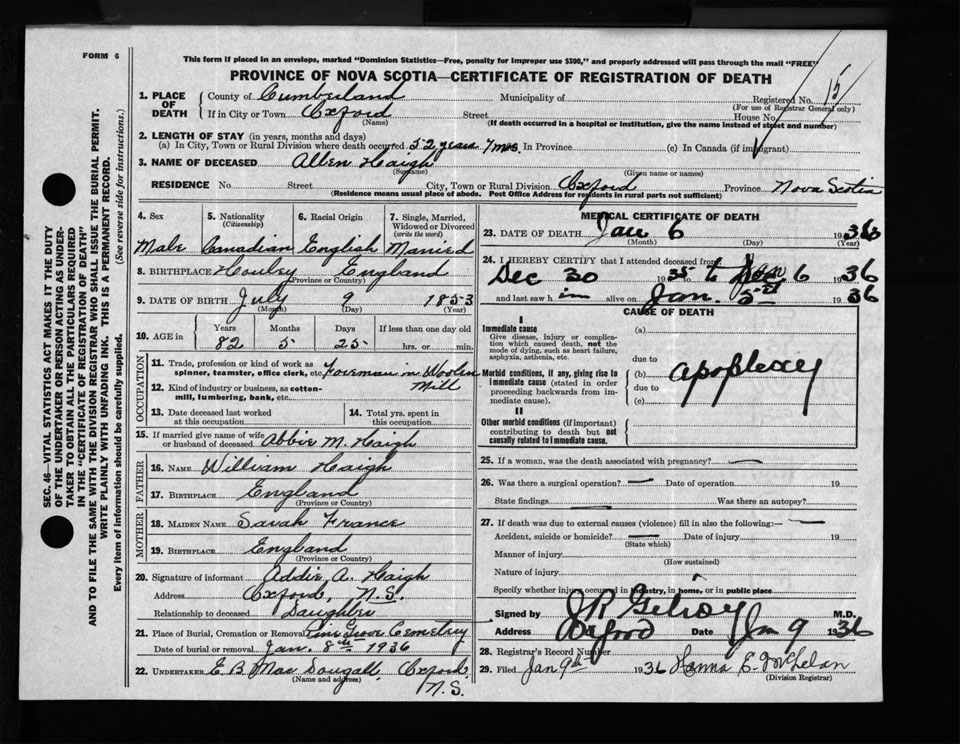 FORM 6
This form if placed in an envelope, marked "Dominion Statistics—Free, penalty for improper use $300," and properly addressed will pass through the mail "FREE"
PROVINCE OF NOVA SCOTIA—CERTIFICATE OF REGISTRATION OF DEATH
SEC. 46—VITAL STATISTICS ACT MAKES IT THE DUTY
OF THE UNDERTAKER OR PERSON ACTING AS UNDER-
TAKER TO OBTAIN ALL THE PARTICULARS REQUIRED
IN THE "CERTIFICATE OF REGISTRATION OF DEATH"
AND TO FILE THE SAME WITH THE DIVISION REGISTRAR WHO SHALL ISSUE THE BURIAL PERMIT.
WRITE PLAINLY WITH UNFADING INK. THIS IS A PERMANENT RECORD.
Every item of information should be carefully supplied. (See reverse side for instructions.)
1. PLACE OF DEATH
County of Cumberland Municipality of Registered No. 15
(For use of Registrar General only)
If in City or Town Oxford Street House No.
(Name) (If death occurred in a hospital or institution, give the name instead of street and number)
2. LENGTH OF STAY (in years, months and days)
(a) In City, Town or Rural Division where death occurred 52 years 7 mos. In Province (c) In Canada (if immigrant)
3. NAME OF DECEASED Allen Haigh
(Surname) (Given name or names)
RESIDENCE No. Street City, Town or Rural Division Oxford Province Nova Scotia
(Residence means usual place of abode. Post Office Address for residents in rural parts not sufficient)
4. Sex 5. Nationality (Citizenship) 6. Racial Origin 7. Single, Married, Widowed or Divorced (write the word)
Male Canadian English Married
8. BIRTHPLACE England
(Province or Country)
9. DATE OF BIRTH July 9 1853
(Month) (Day) (Year)
10. AGE in Years Months Days If less than one day old
82 5 25 hrs. or min.
OCCUPATION
11. Trade, profession or kind of work as spinner, teamster, office clerk, etc. Foreman in Woolen
12. Kind of industry or business, as cotton-mill, lumbering, bank, etc. Mill
13. Date deceased last worked at this occupation
14. Total yrs. spent in this occupation
15. If married give name of wife or husband of deceased Abbie M. Haigh
FATHER
16. NAME William Haigh
17. BIRTHPLACE England
(Province or Country)
MOTHER
18. MAIDEN NAME Sarah France
19. BIRTHPLACE England
(Province or Country)
20. Signature of informant Addie A. Haigh
Address Oxford, N.S.
Relationship to deceased Daughter
21. Place of Burial, Cremation or Removal Pine Grove Cemetery
Date of burial or removal Jan. 8th 1936
22. UNDERTAKER E B Mac Dougall Oxford
(Name and address) N.S.
MEDICAL CERTIFICATE OF DEATH
23. DATE OF DEATH Jan 6 1936
(Month) (Day) (Year)
24. I HEREBY CERTIFY that I attended deceased from
Dec 30 1935 to Jan 6 1936
and last saw him alive on Jan. 5th 1936
CAUSE OF DEATH
I
Immediate cause (a)
Give disease, injury or complication which caused death, not the mode of dying, such as heart failure, asphyxia, asthenia, etc.
due to
Morbid conditions, if any, giving rise to immediate cause (stated in order proceeding backwards from immediate cause).
(b) apoplexy
due to
(c)
II
Other morbid conditions (if important) contributing to death but not causally related to immediate cause.
25. If a woman, was the death associated with pregnancy? —
26. Was there a surgical operation? — Date of operation 19
State findings — Was there an autopsy?
27. If death was due to external causes (violence) fill in also the following:—
Accident, suicide or homicide? — Date of injury 19
(State which)
Manner of injury
(How sustained)
Nature of injury
Specify whether injury occurred in industry, in home, or in public place
Signed by J R Gilroy M.D.
Address Oxford Date Jan 9 1936
28. Registrar's Record Number
29. Filed Jan 9th 1936 Hanna E. Whelan
(Division Registrar)